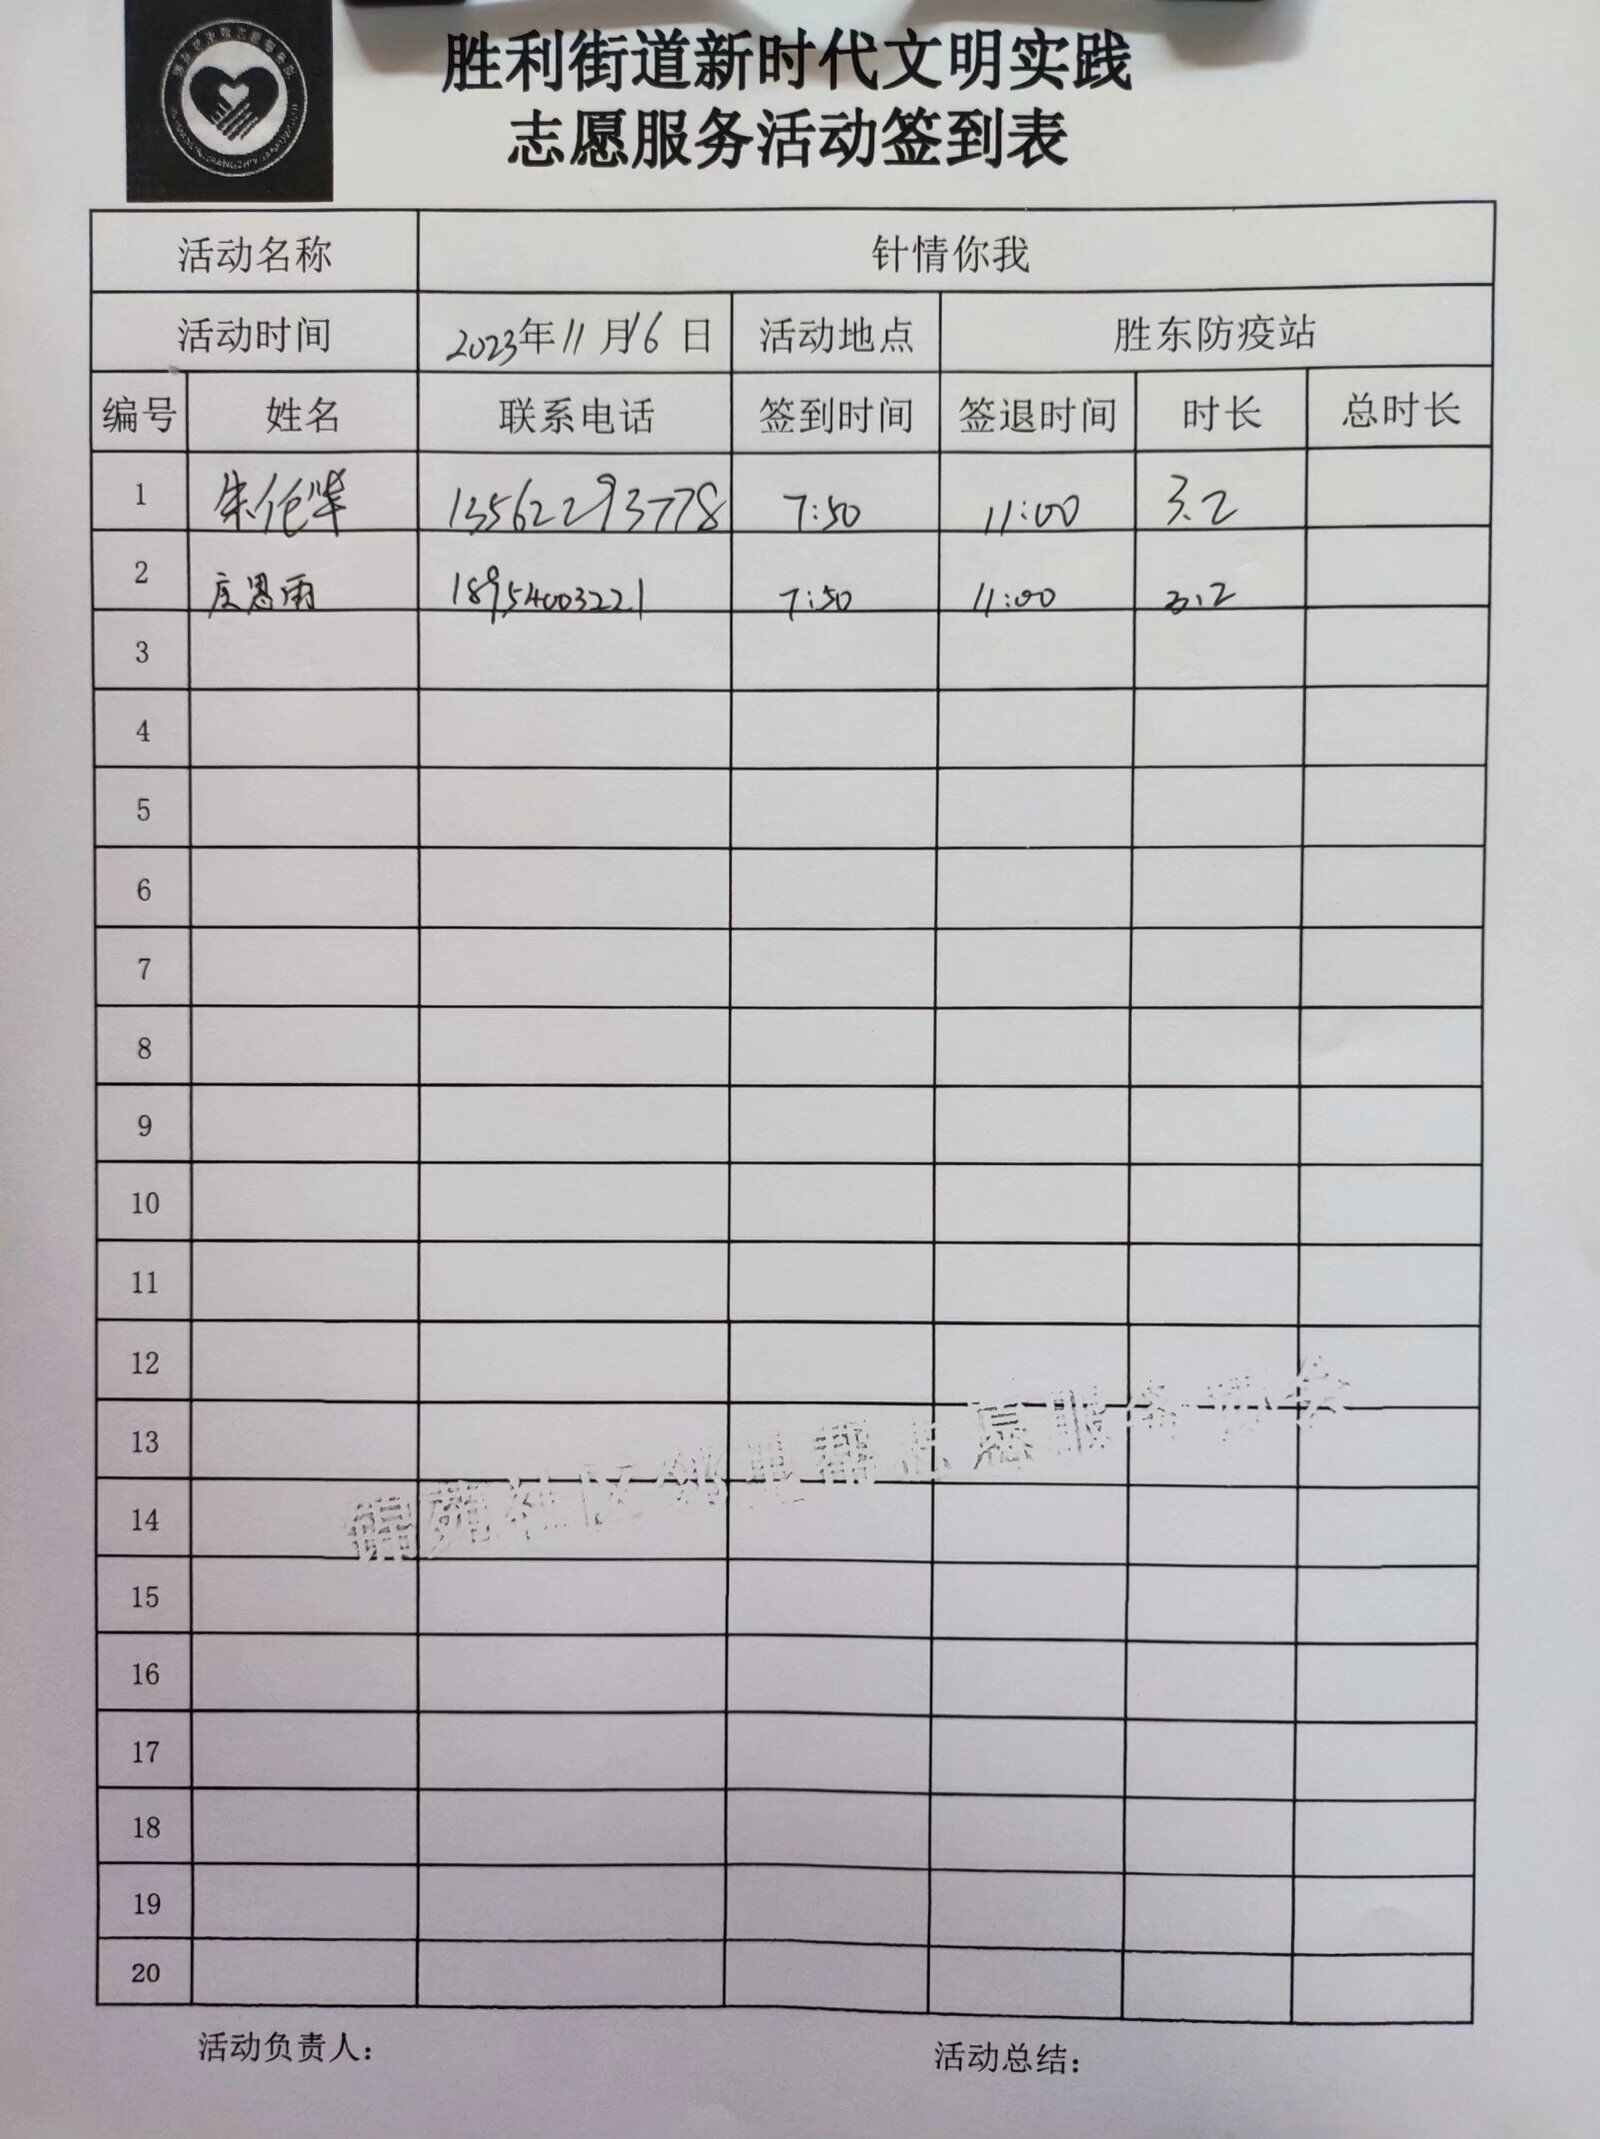 胜利街道新时代文明实践
志愿服务活动签到表
活动名称 针情你我
活动时间 2023年11月16日 活动地点 胜东防疫站
编号 姓名 联系电话 签到时间 签退时间 时长 总时长
1 朱伦华 13562293778 7:50 11:00 3.2
2 恩雨 18954003221 7:50 11:00 3.2
3
4
5
6
7
8
9
10
11
12
13
14
15
16
17
18
19
20
社区邻里帮志愿服务协会
活动负责人： 活动总结：